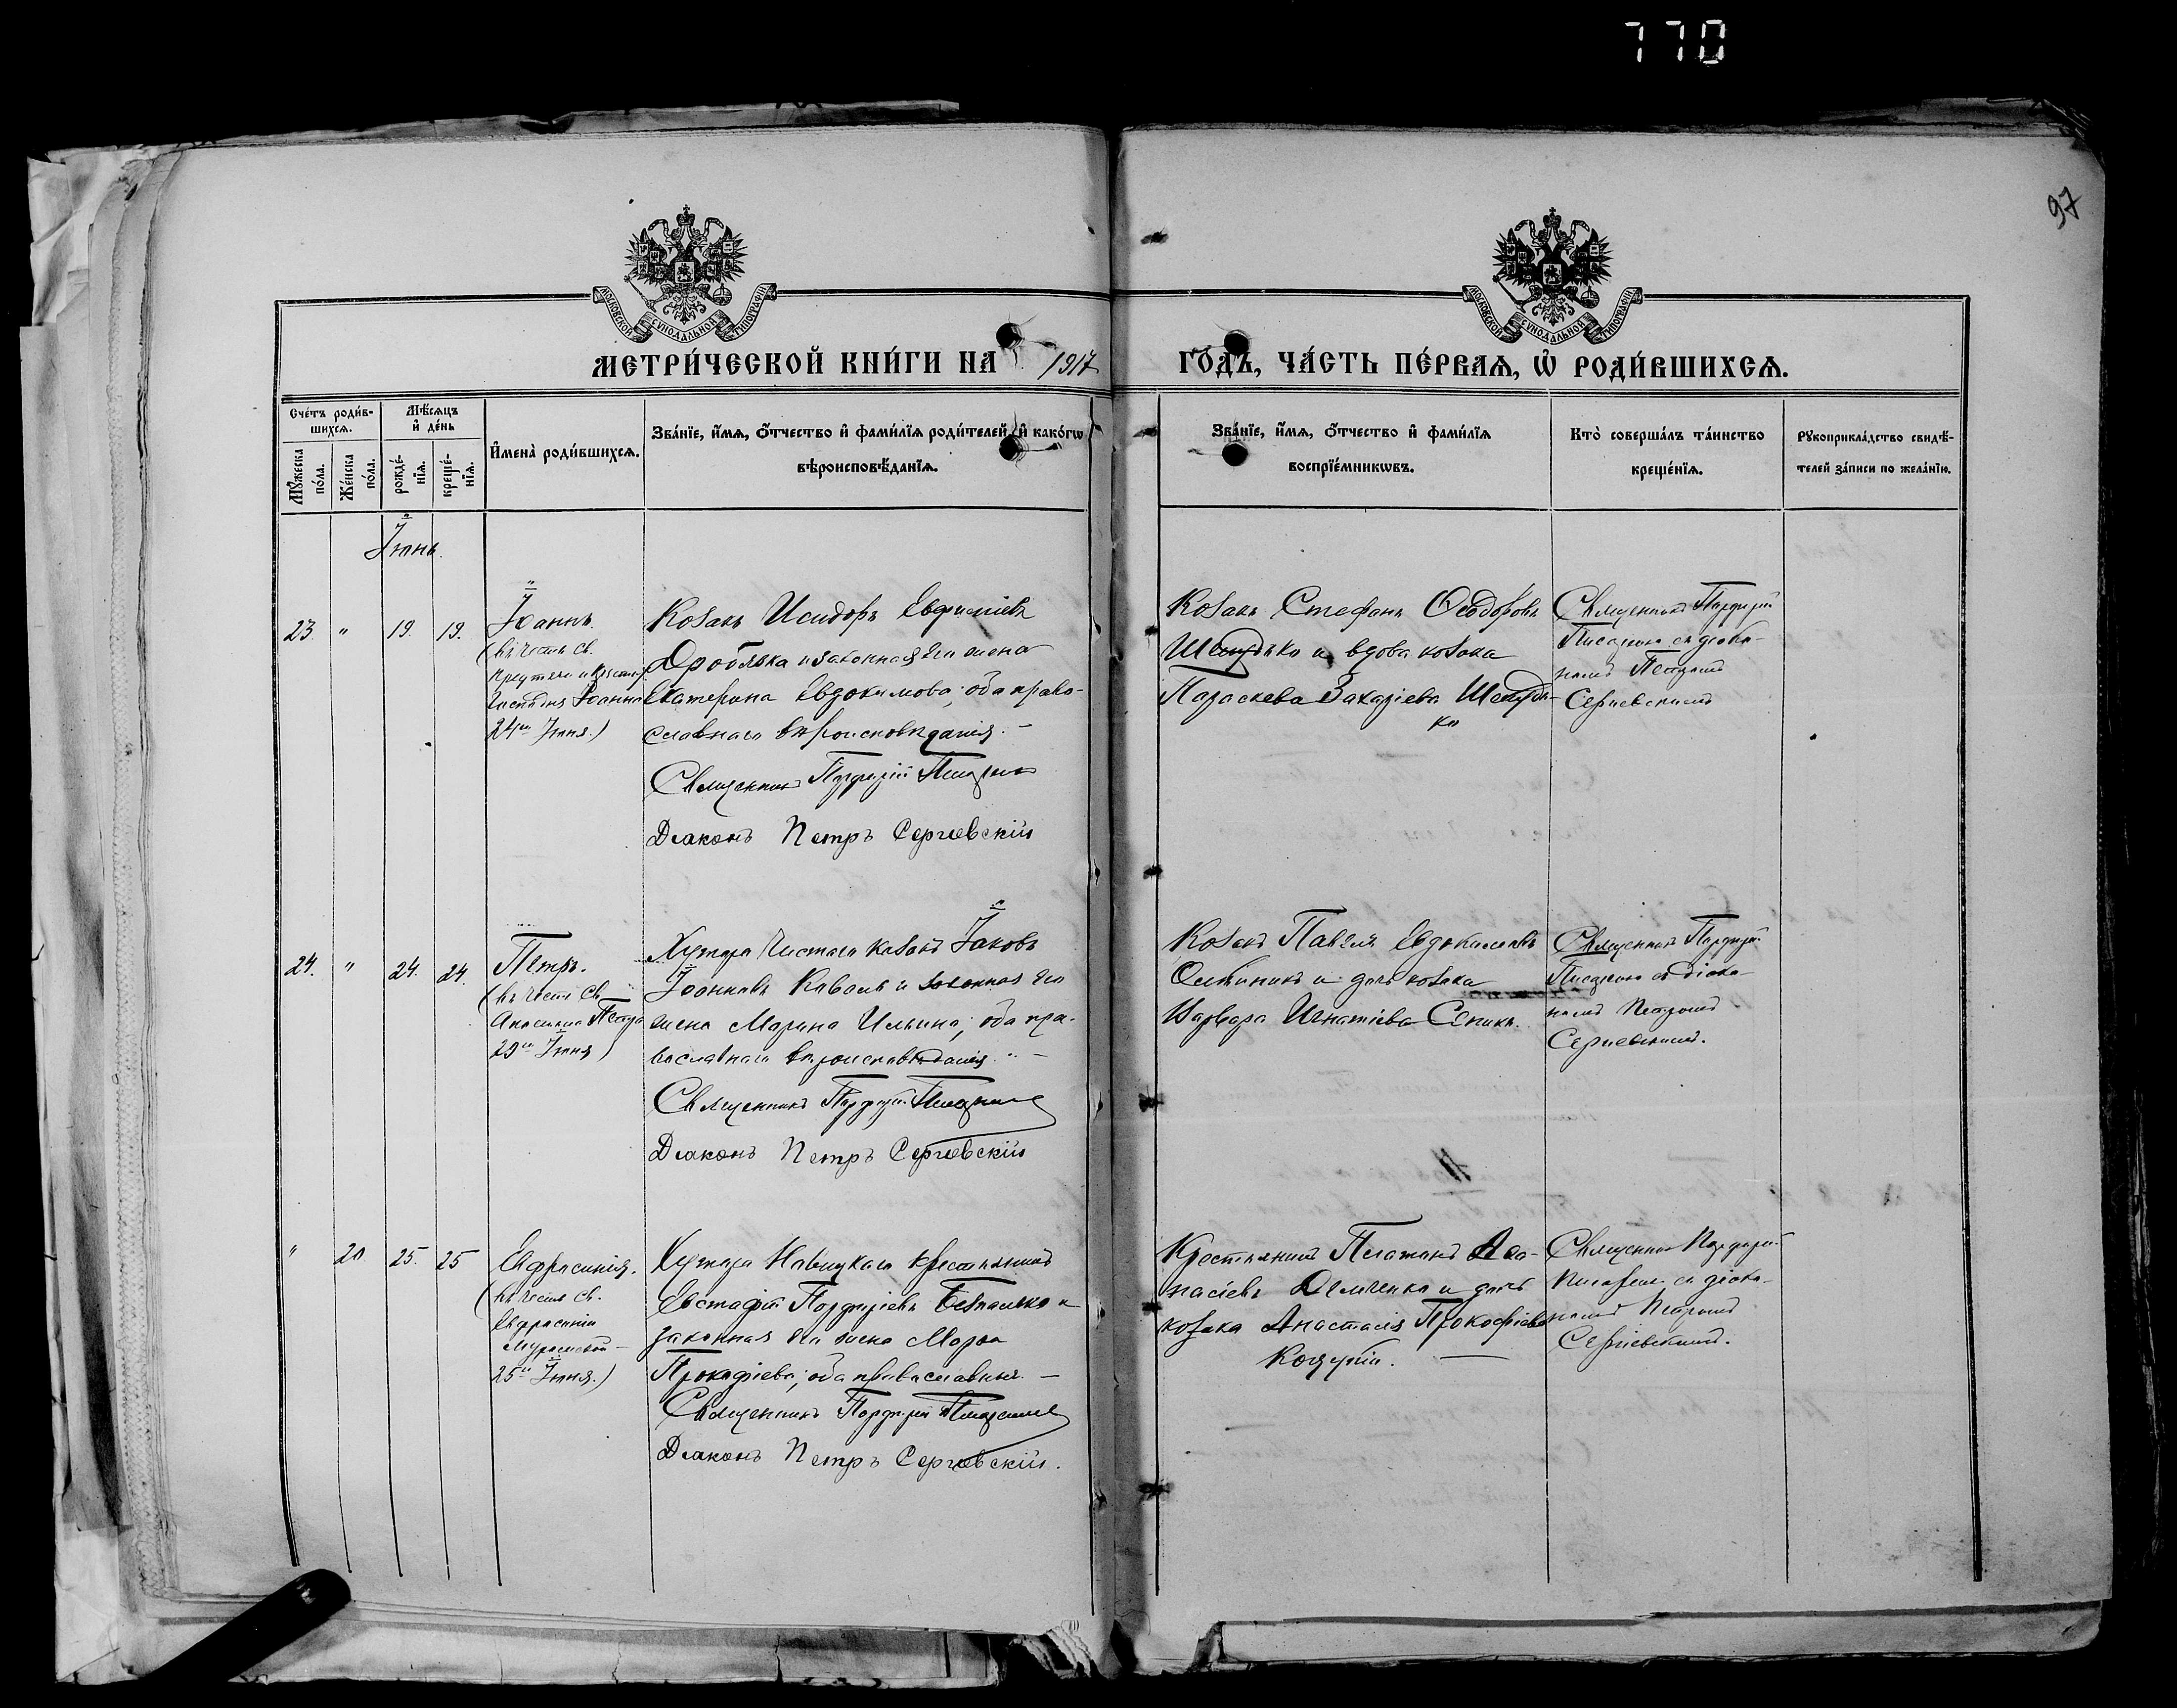 770
97
МОСКОВСКОЙ СѴНОДАЛЬНОЙ ТИПОГРАФІИ
МОСКОВСКОЙ СѴНОДАЛЬНОЙ ТИПОГРАФІИ
МЕТРИ́ЧЕСКОЙ КНИ́ГИ НА 1917 ГО́ДЪ, ЧА́СТЬ ПЕ́РВАѦ, Ѡ҆ РОДИ́ВШИХСѦ.
Сче́тъ роди́в-
шихсѧ.
Мѣ́сѧцъ
и҆ де́нь
Мꙋ́жеска
по́ла.
Же́нска
по́ла.
рожде́-
нїѧ.
креще́-
нїѧ.
И҆мена̀ роди́вшихсѧ.
Зва́нїе, и҆́мѧ, ѻ҆́тчество и҆ фами́лїѧ роди́телей, и҆ како́гѡ
вѣроисповѣ́данїѧ.
Зва́нїе, и҆́мѧ, ѻ҆́тчество и҆ фами́лїѧ
воспрїе́мникѡвъ.
Кто̀ соверша́лъ та́инство
креще́нїѧ.
Рꙋкоприкла́дство свидѣ́-
телей за́писи по жела́нїю.
Іюнь.
23. " 19. 19.
Іоаннъ.
(въ честь св.
Предтечи и Крестит.
Господня Іоанна
24го Іюня.)
Козакъ Исидоръ Евфиміевъ
Дробязка и законная его жена
Екатерина Евдокимова; оба право-
славнаго вѣроисповѣданія. –
Священникъ Порфирій
Діаконъ Петръ Сергіевскій
Козакъ Стефанъ Ѳеодоровъ
и вдова козака
Параскева Захаріева
ко
Священникъ Порфирій
съ діако-
номъ Петромъ
Сергіевскимъ
24. " 24. 24.
Петръ.
(въ честь св.
Апостола Петра
29го Іюня)
Хутора Чистаго козакъ Іаковъ
Іоанновъ Коваль и законная его
жена Марина Ильина; оба пра-
вославнаго вѣроисповѣданія. –
Священникъ Порфирій
Діаконъ Петръ Сергіевскій
Козакъ Павелъ Евдокимовъ
Олейникъ и дочь козака
Варвара Игнатіева Сеникъ.
Священникъ Порфирій
съ діако-
номъ Петромъ
Сергіевскимъ.
" 20. 25. 25
Евфросинія.
(въ честь св.
Евфросиніи
Муромской –
25го Іюня.)
Хутора Новицкаго крестьянинъ
Евстафій Порфиріевъ Безпалько и
законная его жена Марѳа
Прокофіева; оба православные. –
Священникъ Порфирій
Діаконъ Петръ Сергіевскій.
Крестьянинъ Платонъ Аѳа-
насіевъ Демченко и дочь
козака Анастасія Прокофіева
Священникъ Порфирій
съ діако-
номъ Петромъ
Сергіевскимъ.